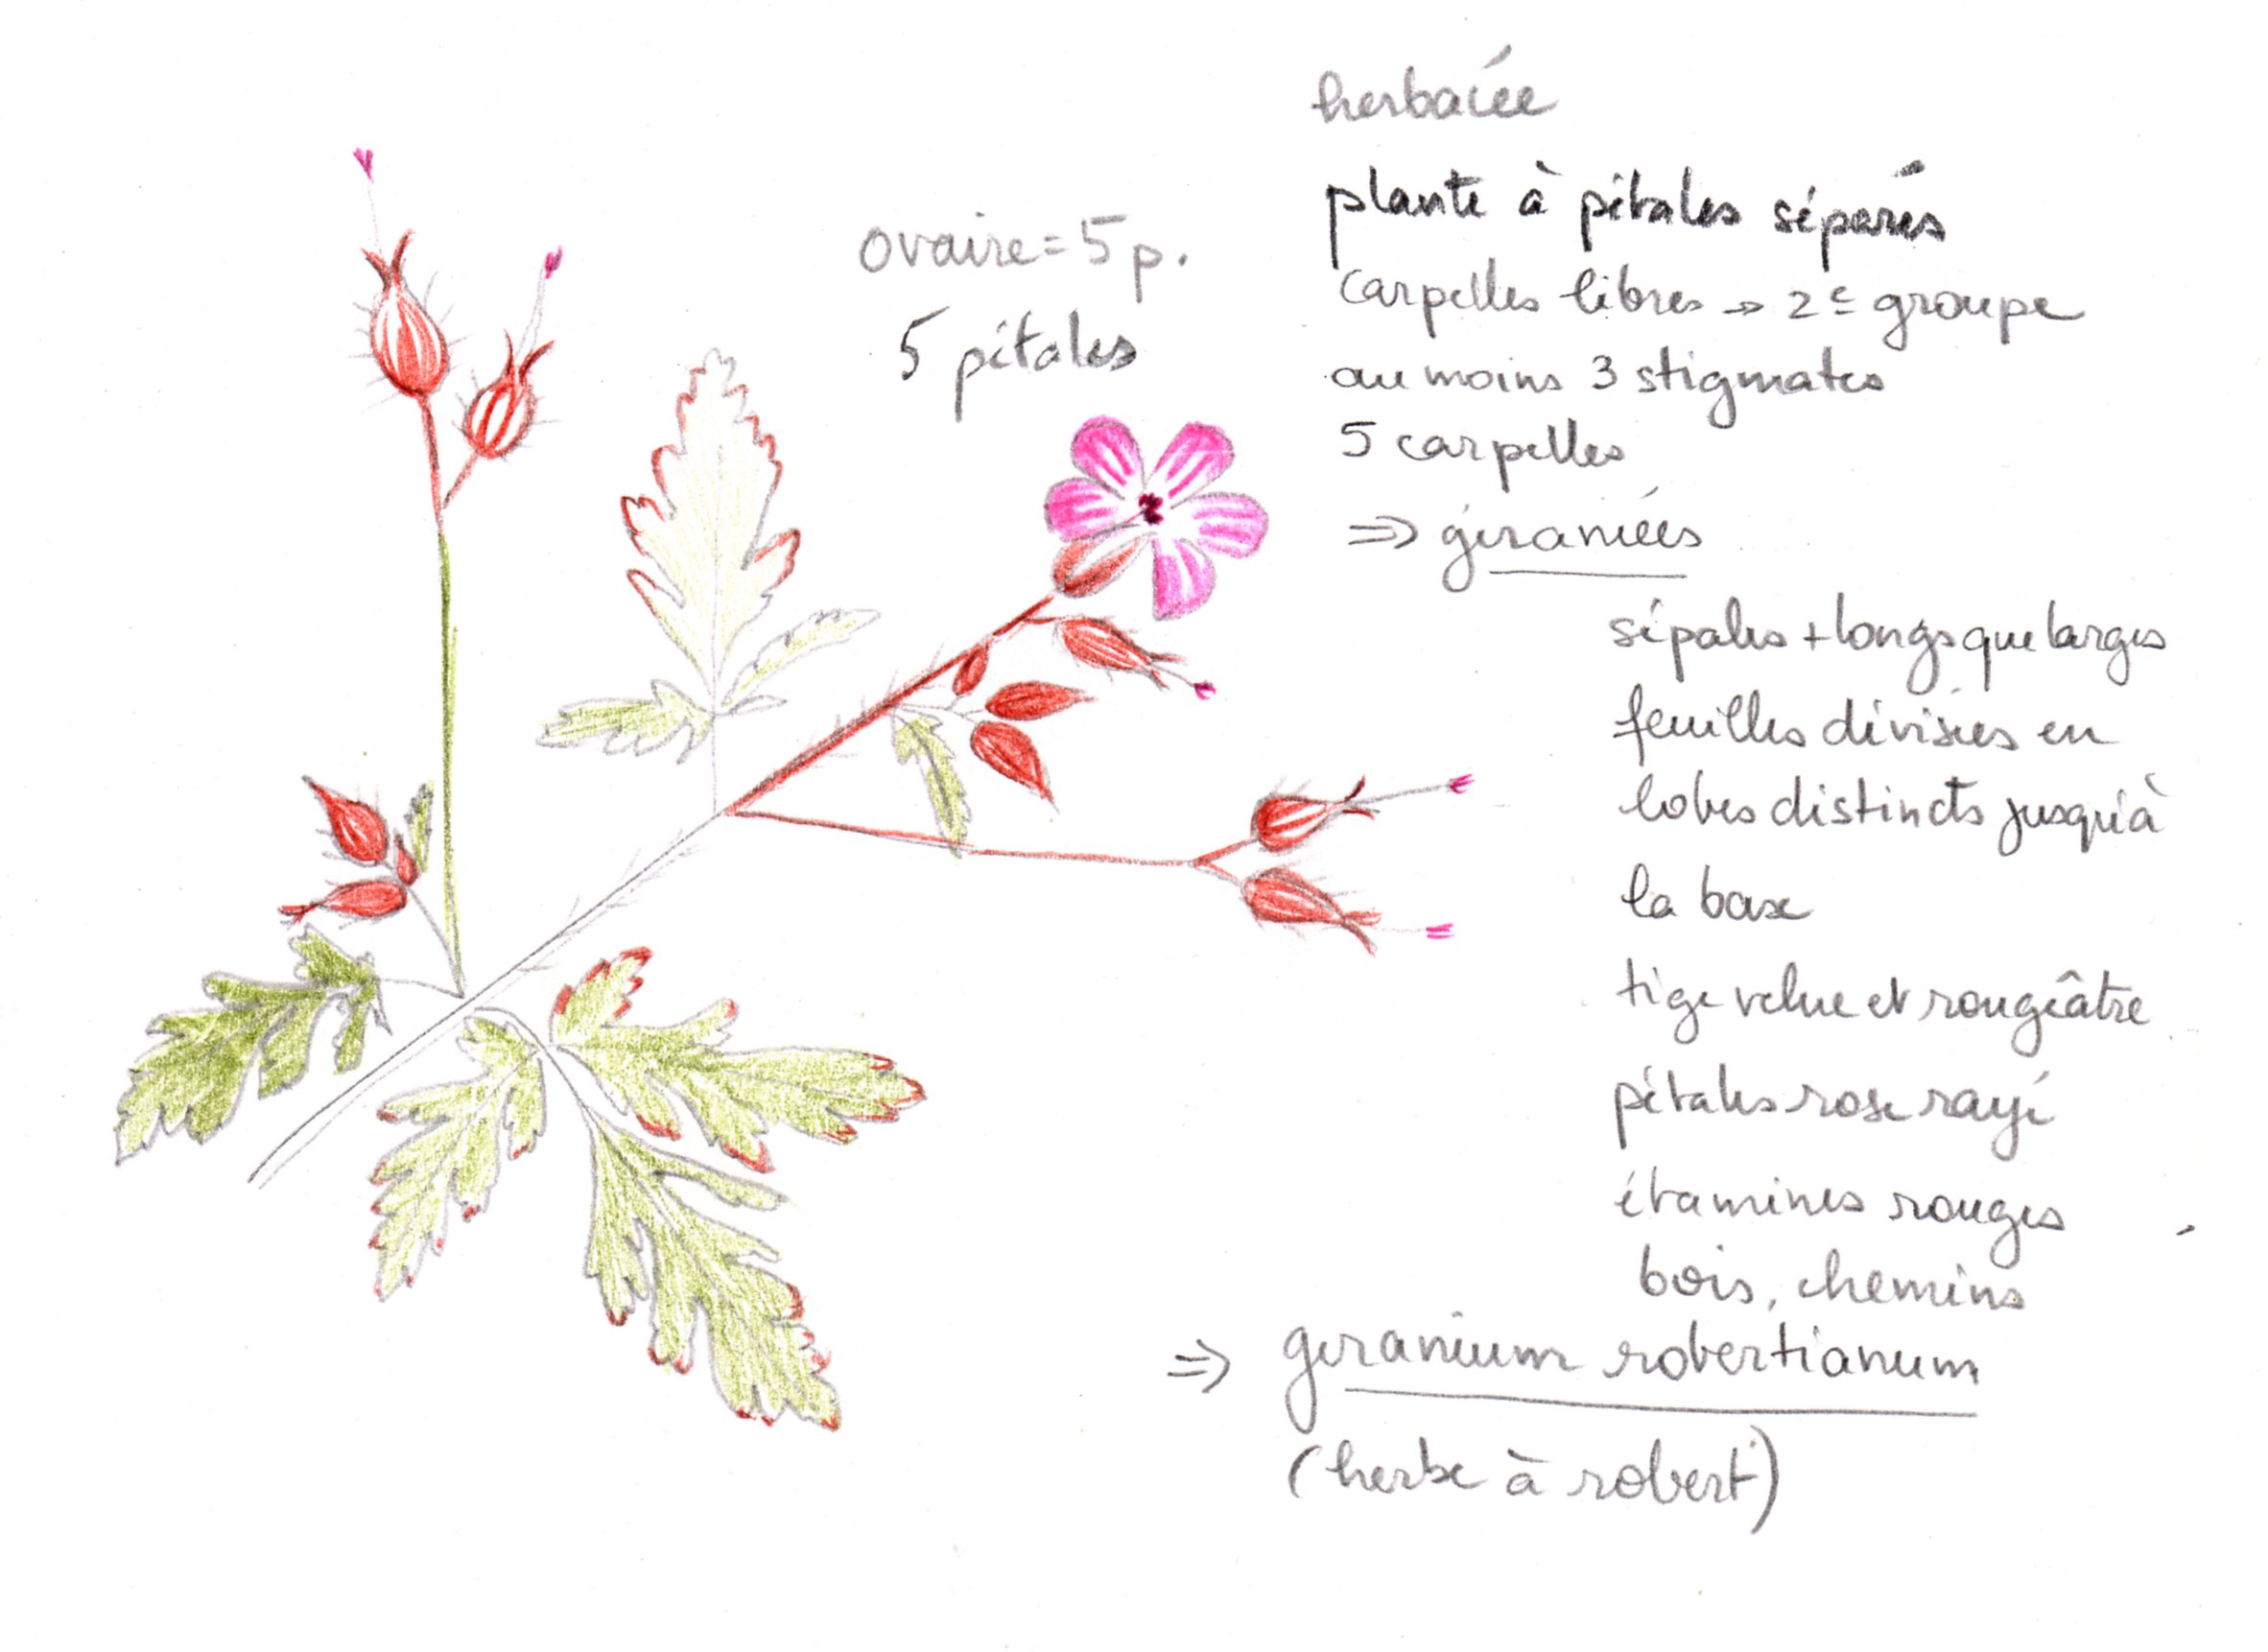 herbacée
plante à pétales séparés
ovaire = 5 p.
5 pétales
carpelles libres → 2e groupe
au moins 3 stigmates
5 carpelles
⇒ géraniées
sépales + longs que larges
feuilles divisées en
lobes distincts jusqu'à
la base
tige velue et rougeâtre
pétales rose rayé
étamines rouges
bois, chemins
⇒ geranium robertianum
(herbe à robert)